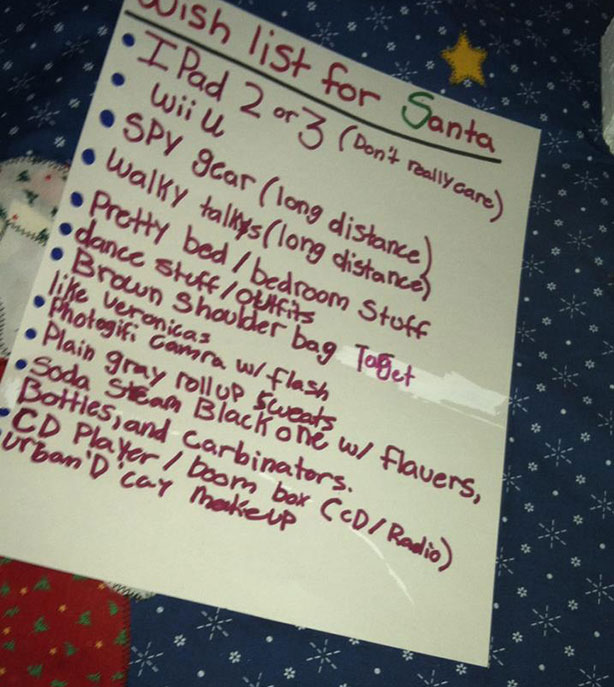 Wish list for Santa
IPad 2 or 3 (Don't really care)
Wii U
SPY gear (long distance)
Walky talkys (long distance)
Pretty bed / bedroom stuff
dance stuff / outfits
Brown Shoulder bag Target
like veronicas
Photogifi camra w/ flash
Plain gray roll up sweats
Soda Steam Black one w/ flavers,
Bottles, and carbinators.
CD Player / boom box (CD / Radio)
urban 'D' cay makeup